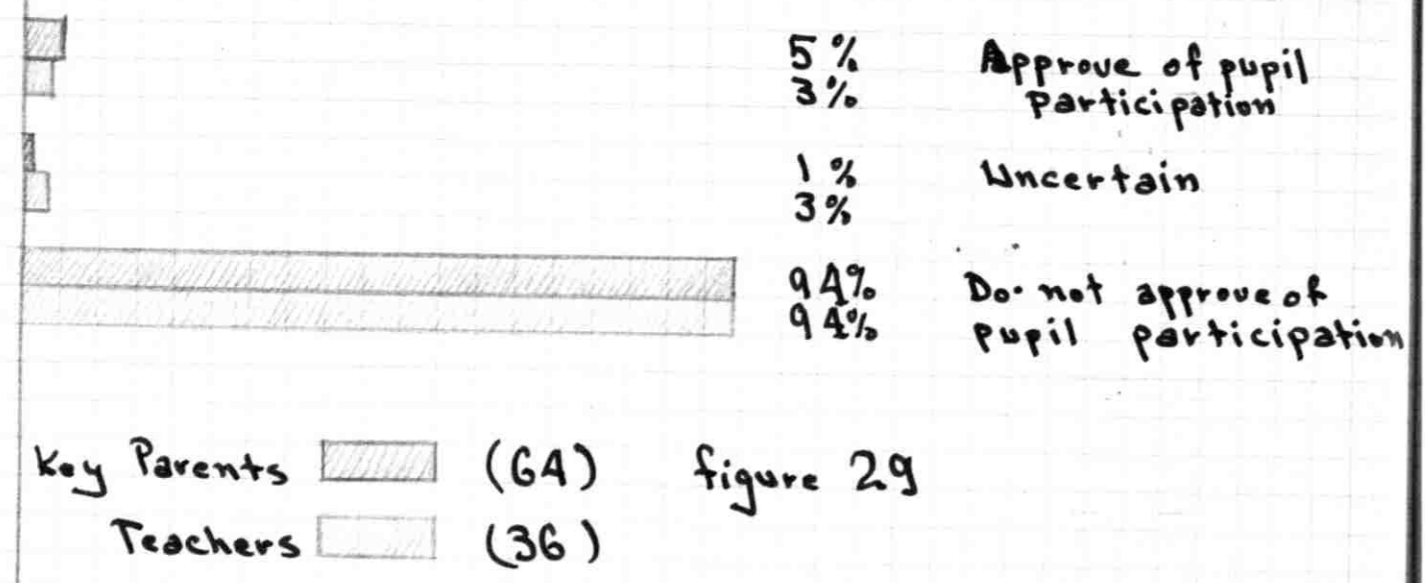 5% Approve of pupil
3% participation
1% Uncertain
3%
94% Do not approve of
94% pupil participation
Key Parents (64) figure 29
Teachers (36)